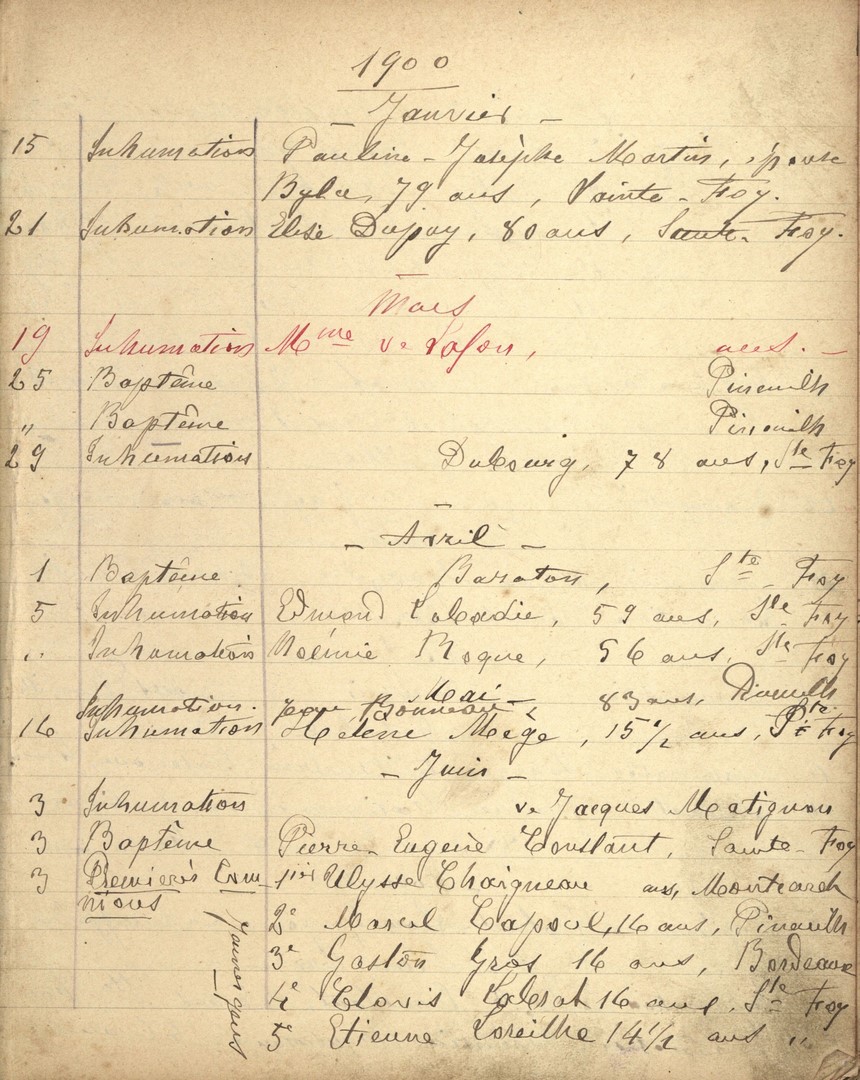 1900
- Janvier -
15 Inhumation Pauline-Josèphe Martin, épouse
79 ans, Sainte-Foy.
21 Inhumation Elise Dupuy, 80 ans, Sainte-Foy.
Mars
19 Inhumation Mme ve Lafon, ans. -
25 Baptême Pineuilh
" Baptême Pineuilh
29 Inhumation Dubourg, 78 ans, Ste Foy
- Avril -
1 Baptême Baraton, Ste Foy
5 Inhumation Edmond Labadie, 59 ans, Ste Foy
" Inhumation Noémie Roque, 56 ans, Ste Foy
Mai -
Inhumation. Bonneau, 83 ans, Pineuilh
16 Inhumation Hélène Mège, 15 1/2 ans, Ste Foy
- Juin -
3 Inhumation ve Jacques Matignon
3 Baptême Pierre-Eugène Constant, Sainte-Foy
3 Premières Com- 1er Ulysse Chaigneau ans,
nions 2e Marcel Capoul, 16 ans, Pineuilh
3e Gaston Gros 16 ans, Bordeaux
4e Clovis 16 ans, Ste Foy
5 Etienne Loreilhe 14 1/2 ans "
Jeunes gens